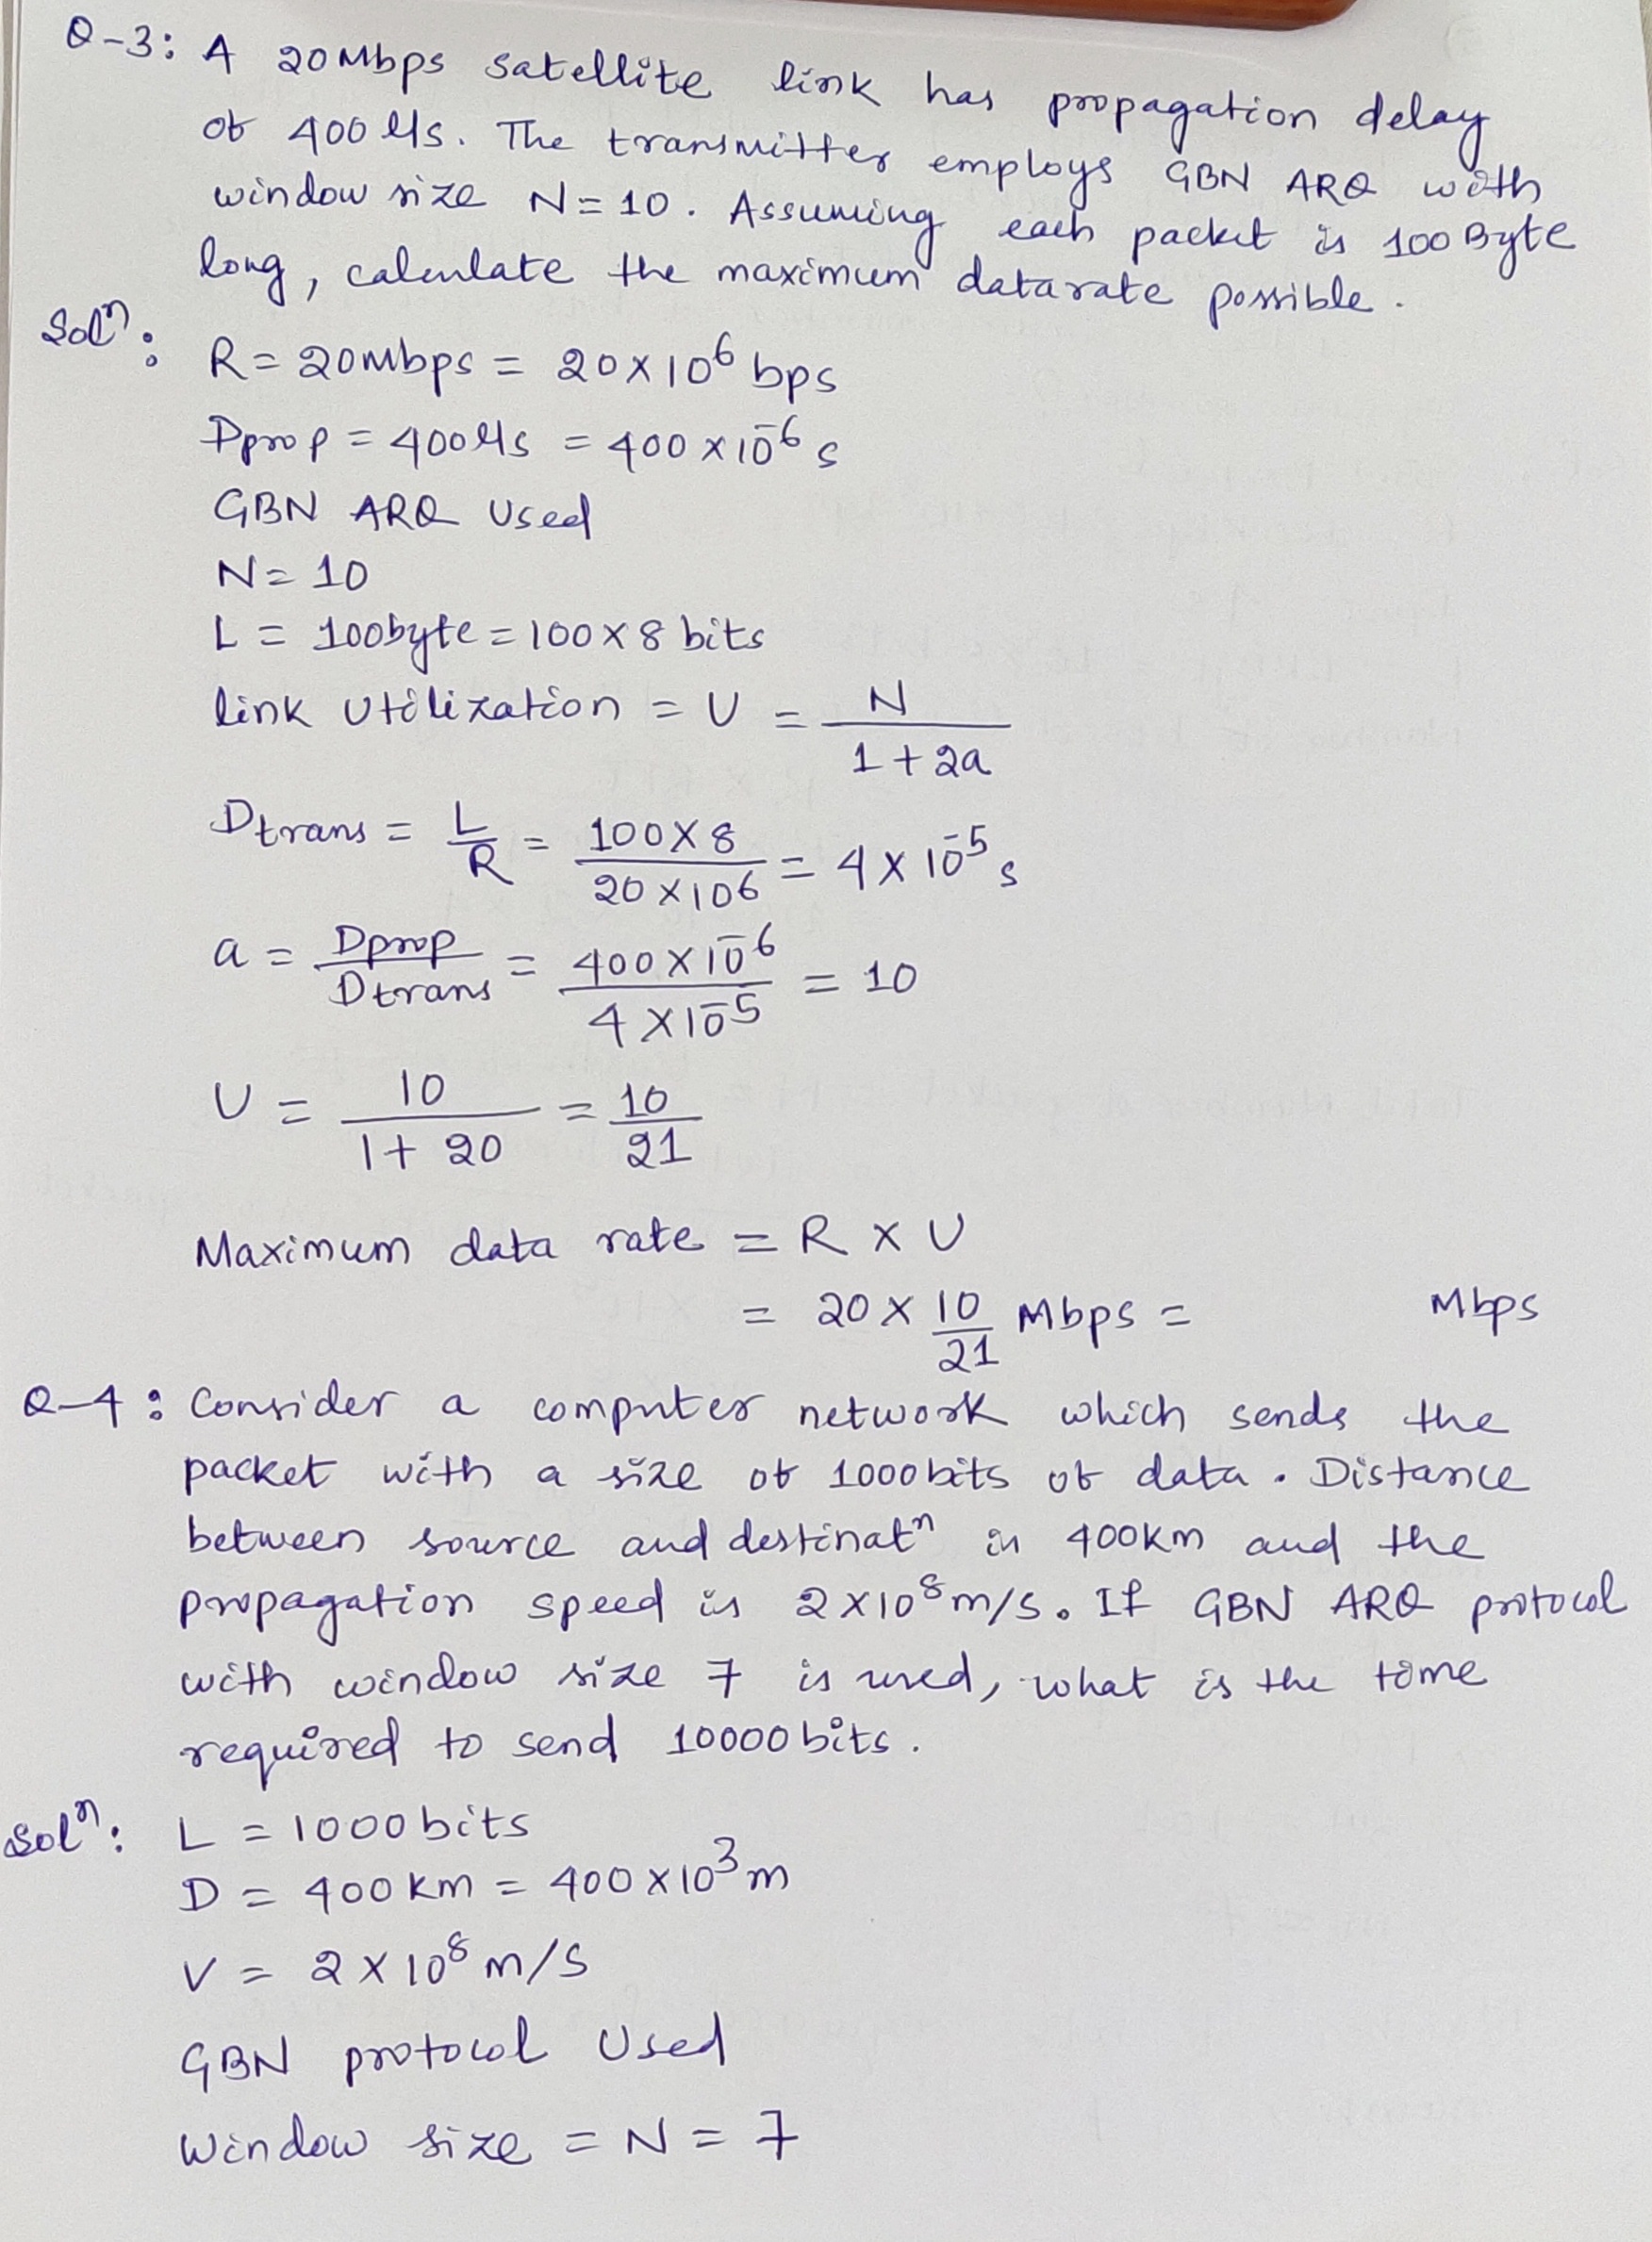 Q-3: A 20Mbps satellite link has propagation delay
of 400 μs. The transmitter employs GBN ARQ with
window size N=10. Assuming each packet is 100 Byte
long, calculate the maximum datarate possible.
Solⁿ:
R = 20Mbps = 20×10⁶ bps
Dprop = 400μs = 400 × 10⁻⁶ s
GBN ARQ Used
N = 10
L = 100byte = 100 × 8 bits
link Utilization = U = N / 1 + 2a
Dtrans = L/R = 100×8 / 20×10⁶ = 4 × 10⁻⁵ s
a = Dprop / Dtrans = 400×10⁻⁶ / 4×10⁻⁵ = 10
U = 10 / 1+ 20 = 10/21
Maximum data rate = R × U
= 20 × 10/21 Mbps = Mbps
Q-4: Consider a computer network which sends the
packet with a size of 1000bits of data. Distance
between source and destinatⁿ is 400km and the
propagation speed is 2×10⁸m/s. If GBN ARQ protocol
with window size 7 is used, what is the time
required to send 10000bits.
Solⁿ: L = 1000bits
D = 400 km = 400×10³m
V = 2×10⁸ m/s
GBN protocol Used
Window size = N = 7